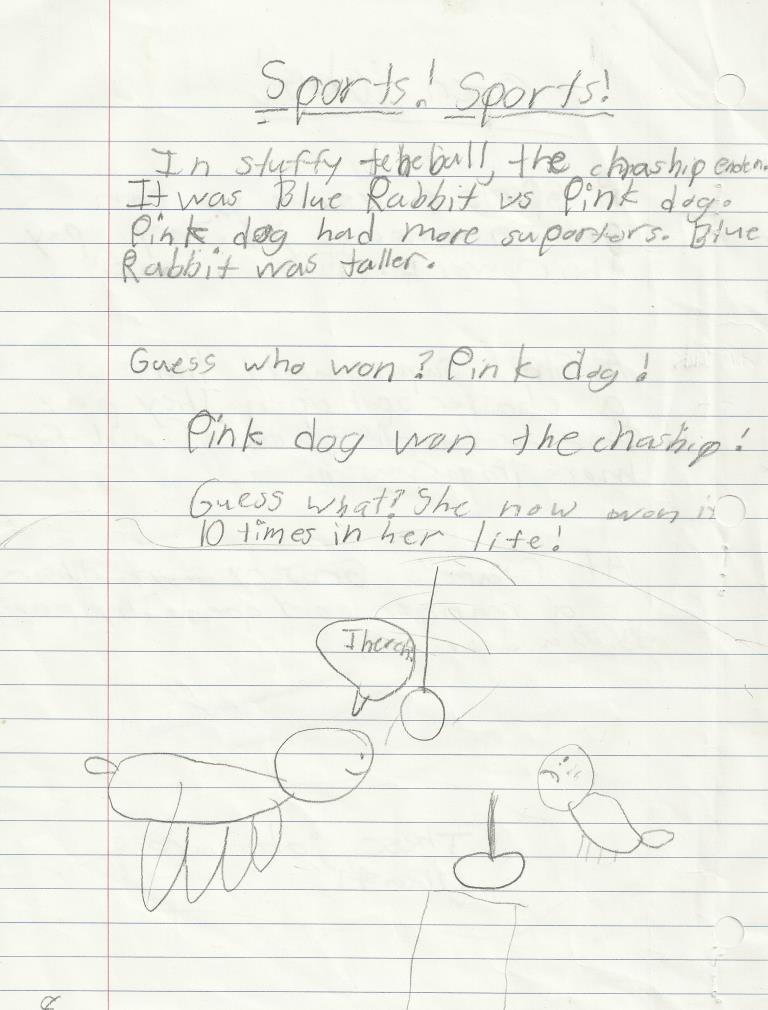 Sports! Sports!
In stuffy tetheball, the chaaship enden.
It was Blue Rabbit vs Pink dog.
Pink dog had more suportors. Blue
Rabbit was taller.
Guess who won? Pink dog!
Pink dog won the chaship!
Guess what? She now won it
10 times in her life!
I